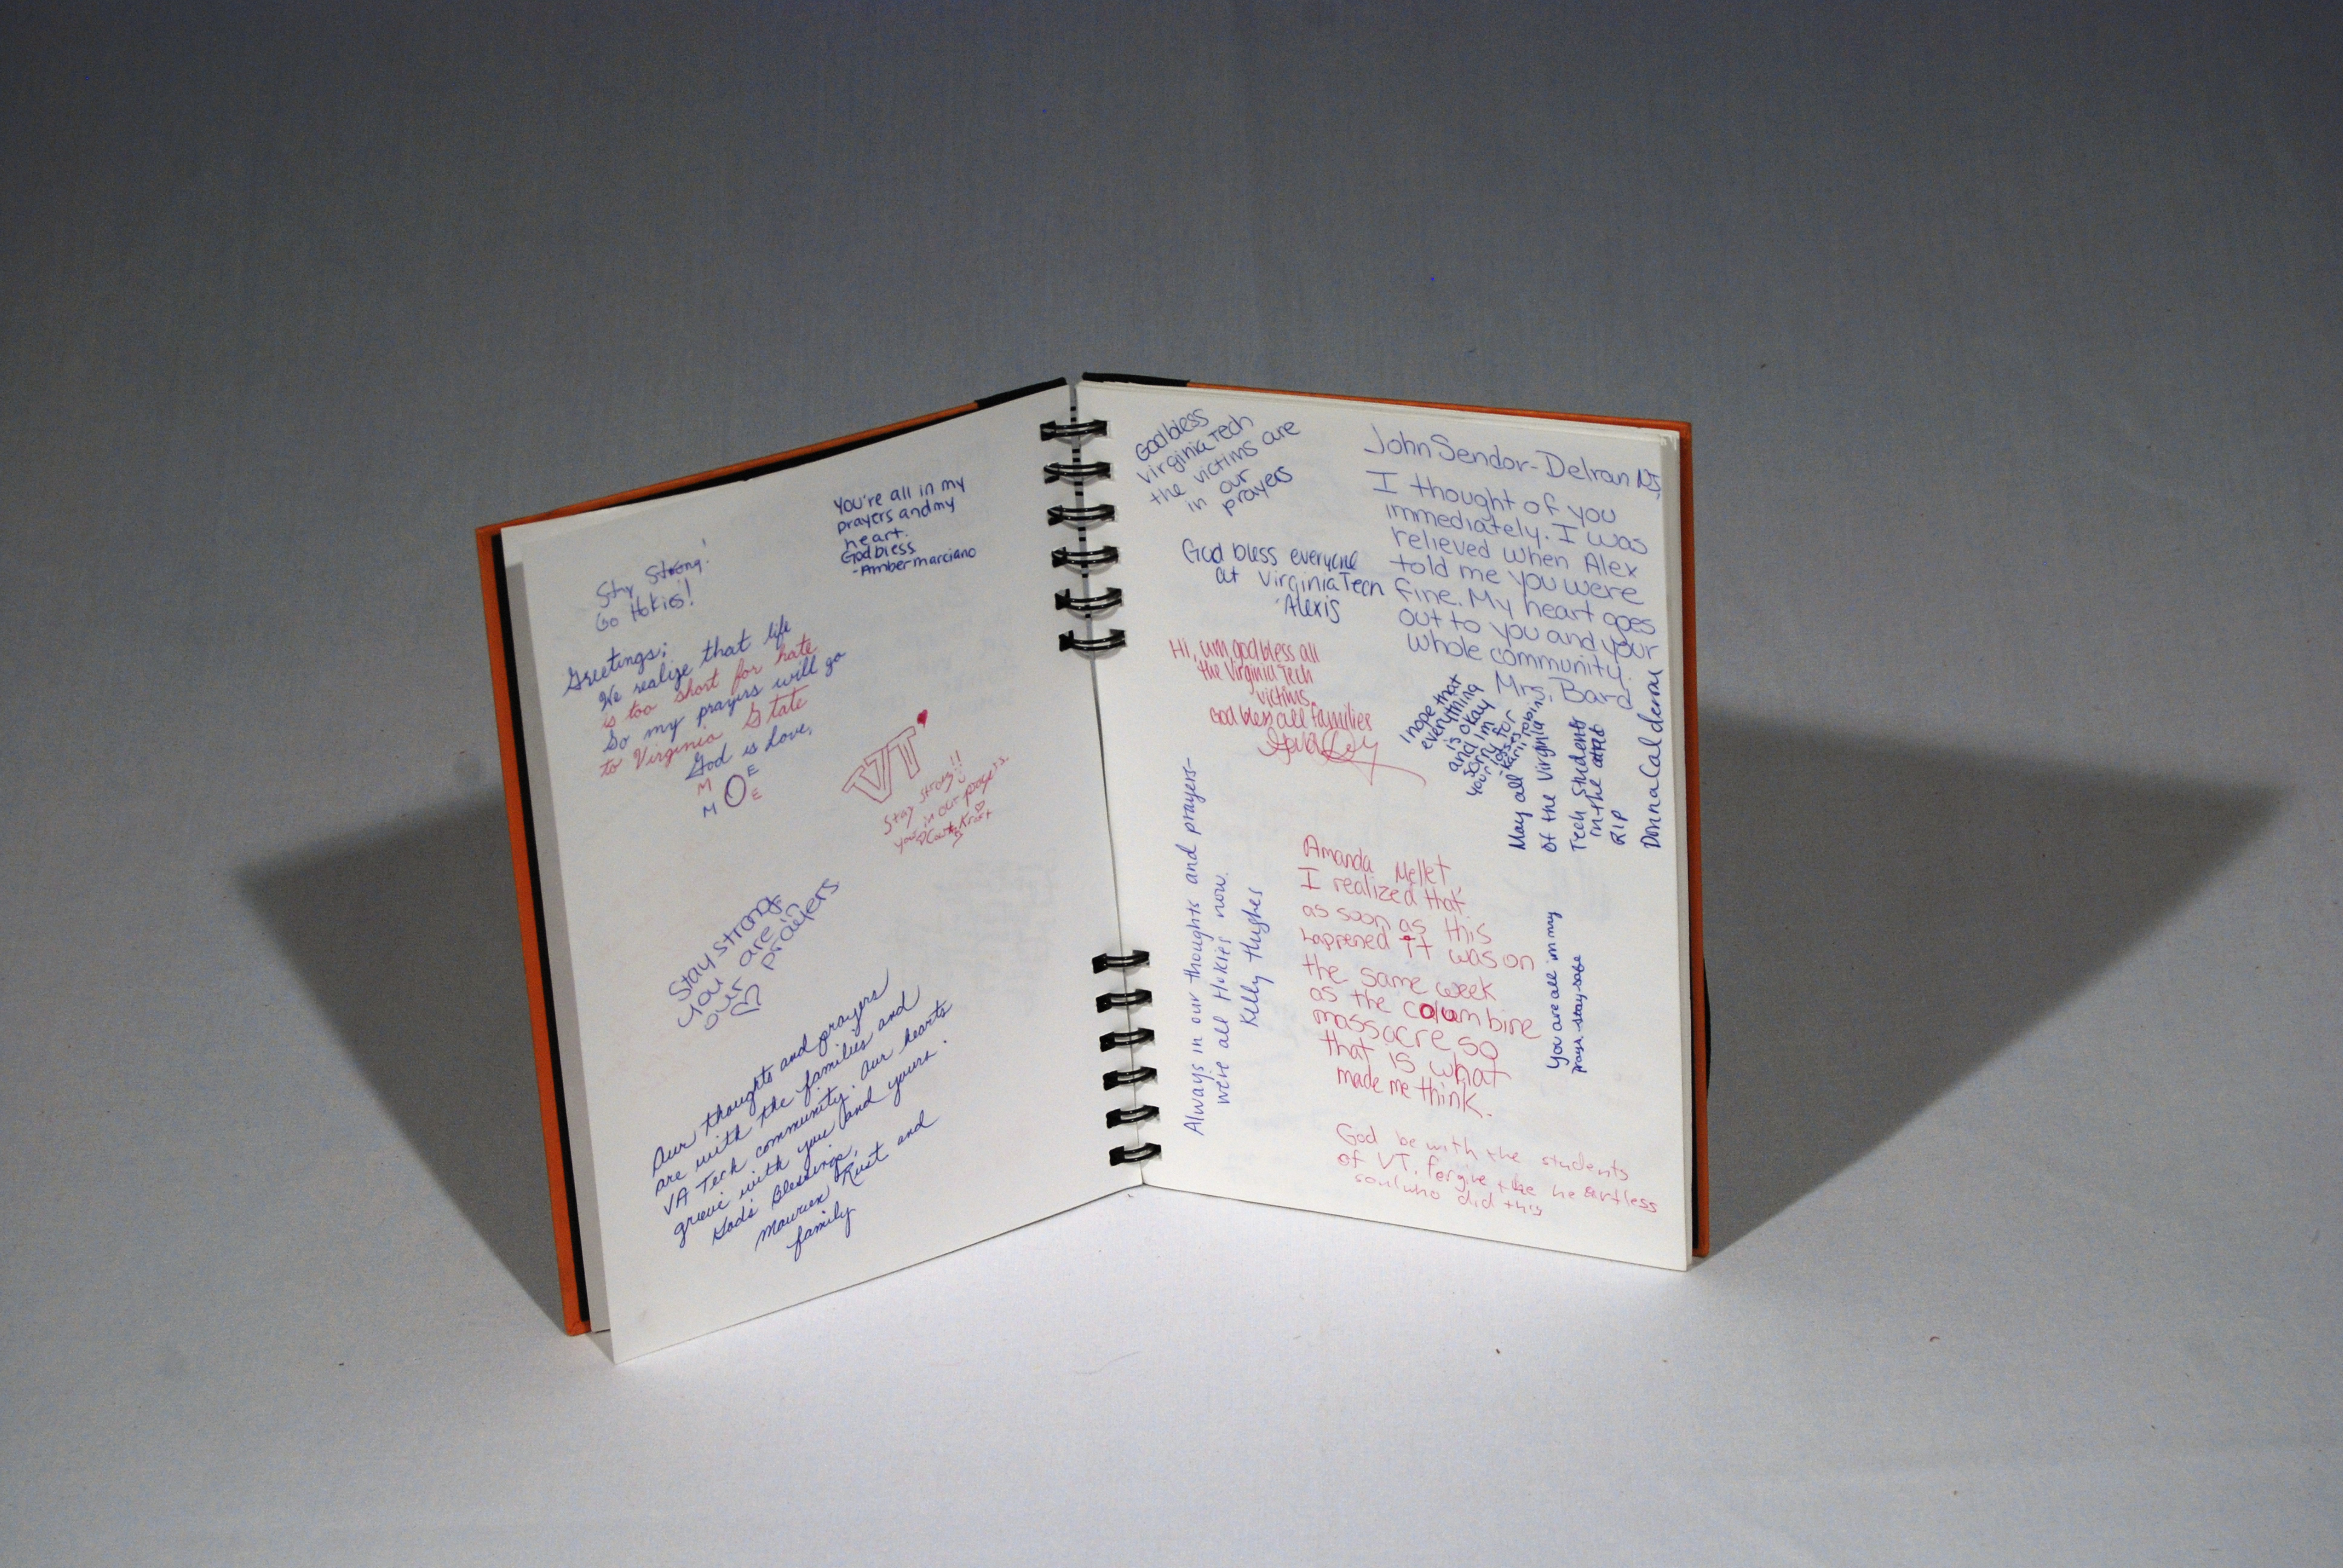 Stay Strong!
Go Hokies!
You're all in my
prayers and my
heart.
God bless
-Amber marciano
Greetings;
We realize that life
is too short for hate
So my prayers will go
to Virginia State
God is Love,
M O E
M E
VT
Stay strong!!
your in our prayers.
Stay strong
you are in
our praiers
Our thoughts and prayers
are with the families and
VA Tech community. Our hearts
grieve with you and yours.
God's Blessings,
and
family
God bless
Virginia Tech
the victims are
in our
prayers
God bless everyone
at Virginia Tech
-Alexis
Hi, um god bless all
the Virginia Tech
victims.
God bless all families
Always in our thoughts and prayers-
we're all Hokies now.
Kelly Hughes
John Sendor-Delran NJ
I thought of you
immediately. I was
relieved when Alex
told me you were
fine. My heart goes
out to you and your
whole community.
Mrs. Bard
I hope that
everything
is okay
and im
sorry for
your losses
May all
of the Virginia
Tech Students
in the
RIP
Donna Calderon
Amanda Mellet
I realized that
as soon as this
happened it was on
the same week
as the columbine
massacre so
that is what
made me think.
You are all in my
prays-stay safe
God be with the students
of VT, forgive the heartless
soul who did this